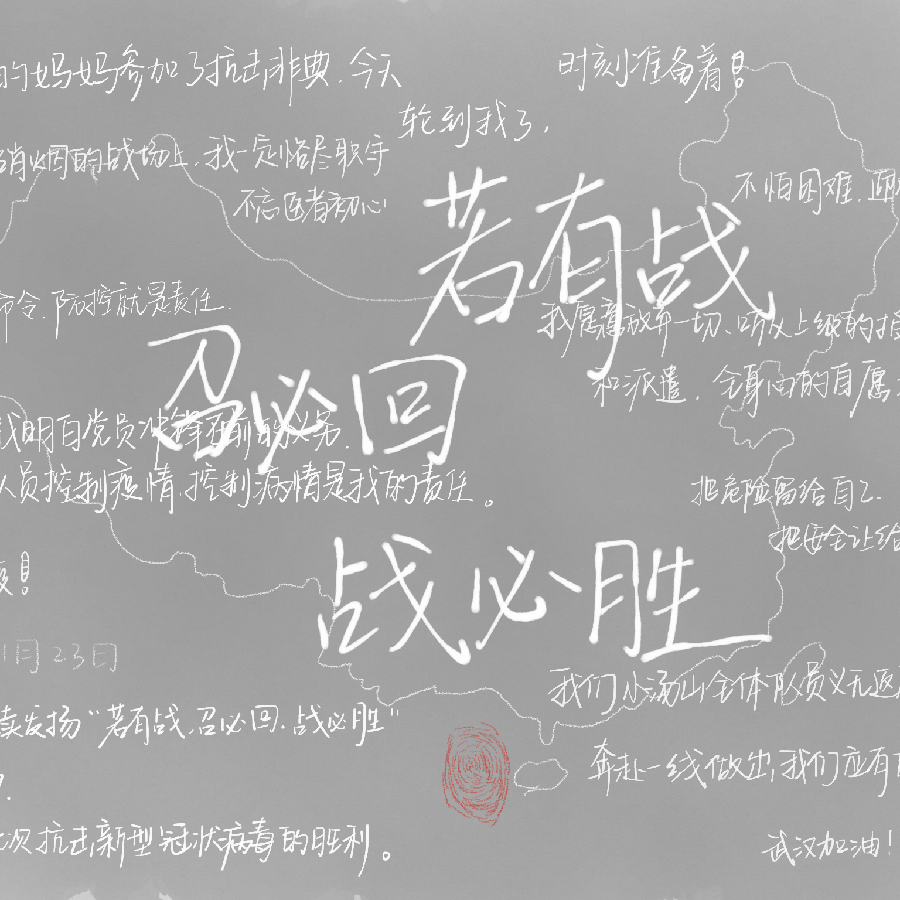 的妈妈参加了抗击非典.今天
时刻准备着!
轮到我了,
硝烟的战场上,我一定恪尽职守
不忘医者初心
不怕困难.迎
若有战
命令.防控就是责任
我愿意放弃一切、听从上级的指
召必回
和派遣.全身心的自愿
我明白党员冲锋在前的义务.
人员控制疫情,控制病情是我的责任。
把危险留给自己.
把安全让给
战必胜
!
1月23日
我们小汤山全体队员义无返
发扬“若有战,召必回.战必胜”
奔赴一线做出,我们应有
次抗击新型冠状病毒的胜利。
武汉加油!